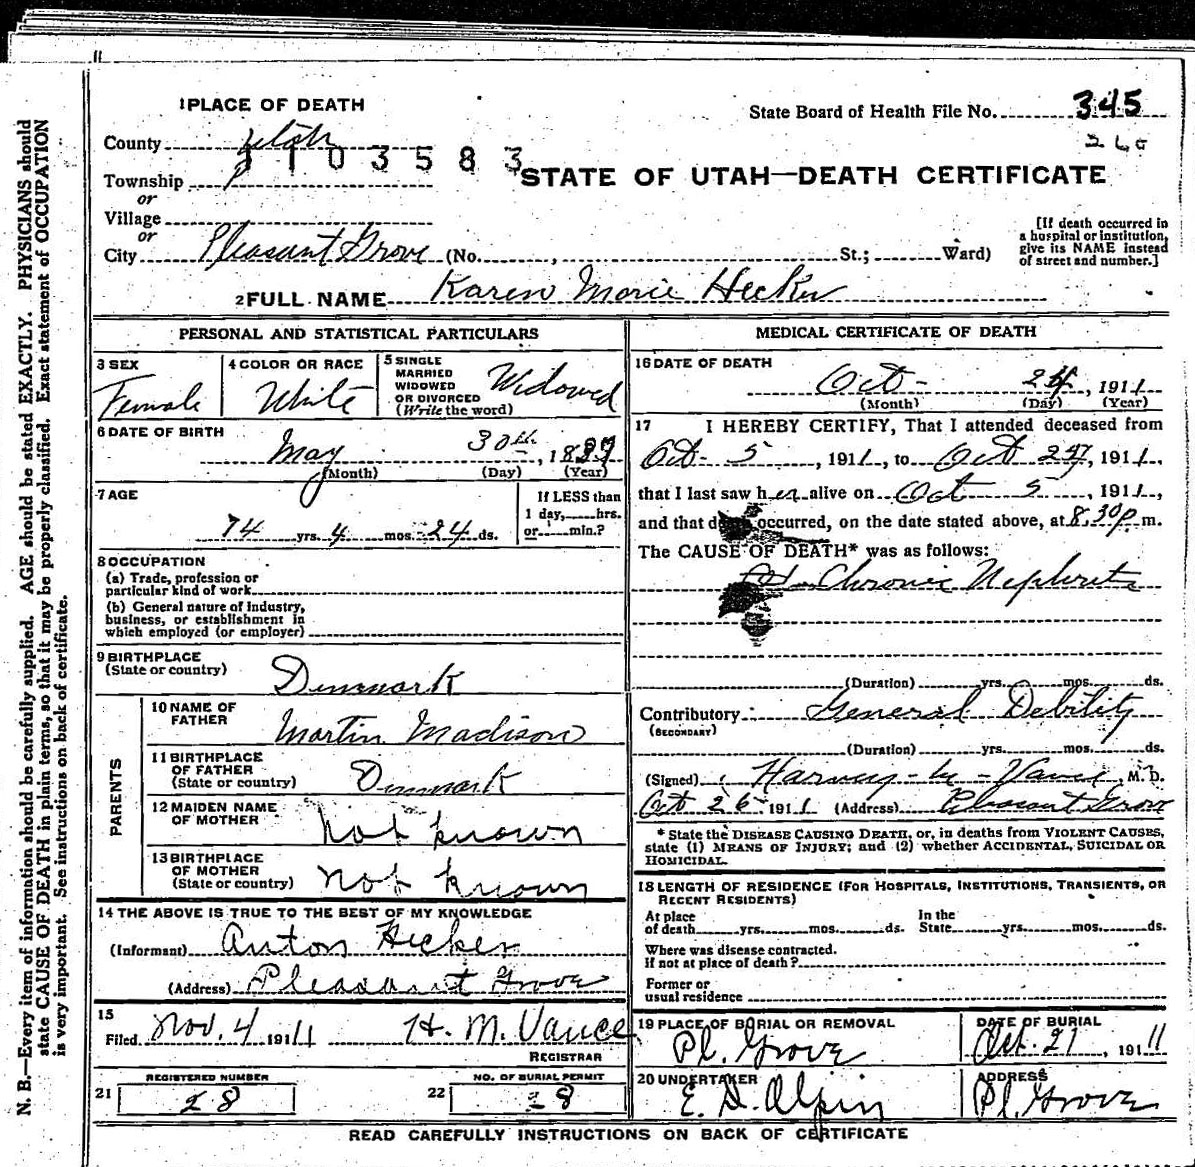 1 PLACE OF DEATH
State Board of Health File No. 345
260
County Utah
1103583
Township
or
STATE OF UTAH—DEATH CERTIFICATE
Village
or
City Pleasant Grove (No. , St.; Ward)
[If death occurred in
a hospital or institution,
give its NAME instead
of street and number.]
2 FULL NAME Karen Marie Hecker
PERSONAL AND STATISTICAL PARTICULARS
3 SEX
Female
4 COLOR OR RACE
White
5 SINGLE
MARRIED
WIDOWED
OR DIVORCED
(Write the word)
Widowed
6 DATE OF BIRTH
May 30th, 1837
(Month) (Day) (Year)
7 AGE
74 yrs. 4 mos. 24 ds.
If LESS than
1 day, hrs.
or min.?
8 OCCUPATION
(a) Trade, profession or
particular kind of work
(b) General nature of industry,
business, or establishment in
which employed (or employer)
9 BIRTHPLACE
(State or country)
Denmark
PARENTS
10 NAME OF
FATHER
Martin Madison
11 BIRTHPLACE
OF FATHER
(State or country)
Denmark
12 MAIDEN NAME
OF MOTHER
not known
13 BIRTHPLACE
OF MOTHER
(State or country)
not known
14 THE ABOVE IS TRUE TO THE BEST OF MY KNOWLEDGE
(Informant) Anton Hecker
(Address) Pleasant Grove
15
Filed Nov. 4 1911 H. M. Vance
REGISTRAR
REGISTERED NUMBER
21 28
NO. OF BURIAL PERMIT
22 28
MEDICAL CERTIFICATE OF DEATH
16 DATE OF DEATH
Oct - 24, 1911
(Month) (Day) (Year)
17 I HEREBY CERTIFY, That I attended deceased from
Oct - 5, 1911, to Oct 24, 1911,
that I last saw her alive on Oct 5, 1911,
and that death occurred, on the date stated above, at 8.30 p. m.
The CAUSE OF DEATH* was as follows:
Chronic Nephrits
(Duration) yrs. mos. ds.
Contributory General Debility
(SECONDARY)
(Duration) yrs. mos. ds.
(Signed) Harvey - M - Vance, M. D.
Oct 26 1911 (Address) Pleasant Grove
* State the DISEASE CAUSING DEATH, or, in deaths from VIOLENT CAUSES,
state (1) MEANS OF INJURY; and (2) whether ACCIDENTAL, SUICIDAL OR
HOMICIDAL.
18 LENGTH OF RESIDENCE (FOR HOSPITALS, INSTITUTIONS, TRANSIENTS, OR
RECENT RESIDENTS)
At place
of death yrs. mos. ds.
In the
State yrs. mos. ds.
Where was disease contracted.
If not at place of death?
Former or
usual residence
19 PLACE OF BURIAL OR REMOVAL
Pl. Grove
DATE OF BURIAL
Oct. 27, 1911
20 UNDERTAKER
E. D. Olpin
ADDRESS
Pl. Grove
READ CAREFULLY INSTRUCTIONS ON BACK OF CERTIFICATE
N. B.—Every item of information should be carefully supplied. AGE should be stated EXACTLY. PHYSICIANS should
state CAUSE OF DEATH in plain terms, so that it may be properly classified. Exact statement of OCCUPATION
is very important. See instructions on back of certificate.